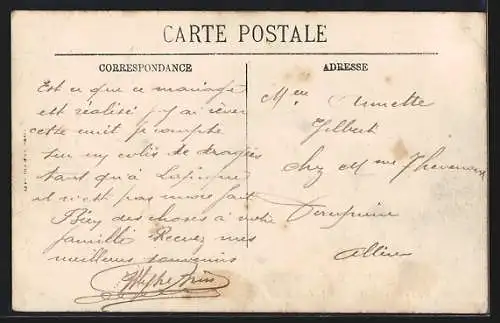 CARTE POSTALE
CORRESPONDANCE
ADRESSE
Est ce que ce mariage
est réalisé j'y ai rêver
cette nuit je compte
sur un colis de dragées
tant qu'à
il n'est pas mort fait
Bien des choses à votre
famille Recevez mes
meilleurs souvenirs
Melle Annette
Gilbert
chez Mme Thevenoux
Dompierre
Allier